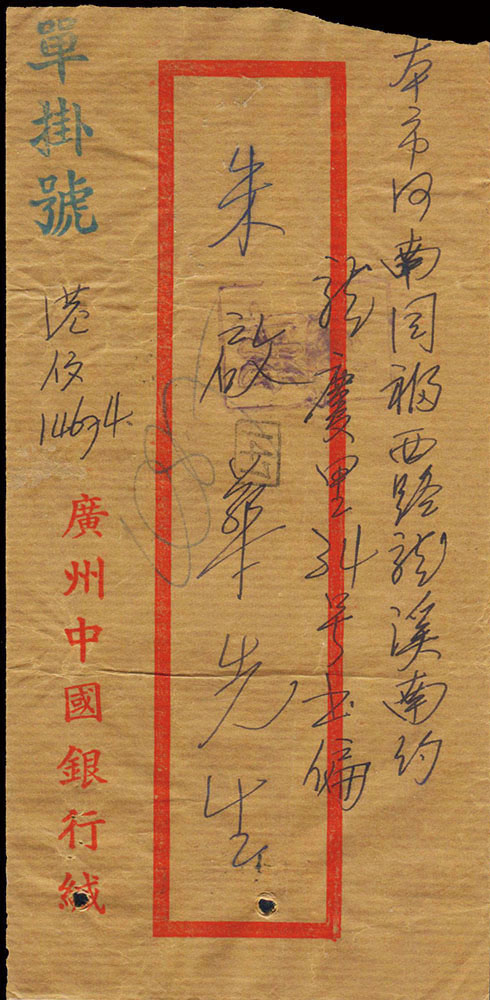 本市河南同福西路龍溪南约
龍慶里34号士偏
朱啟華先生
單掛號
港伩
14634
廣州中國銀行緘